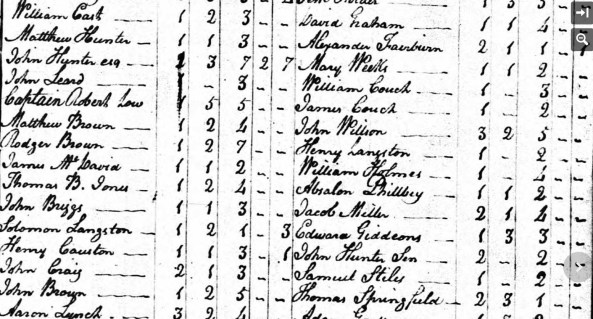 William Cast 1 2 3 - -
Matthew Hunter - 1 1 3 - -
John Hunter esq - 2 3 7 2 7
John Leard 1 - 3 - -
Captain Robert Low 1 5 5 - -
Matthew Brown - 1 2 4 - -
Rodger Brown - 1 2 7 - -
James McDavid - 1 1 2 - -
Thomas B. Jones - 1 2 4 - -
John Briggs - 1 1 3 - -
Solomon Langston - 1 2 1 - 3
Henry Causton - 1 1 3 - 1
John Craig - 2 1 3 - -
John Brown - 1 2 5 - -
Aaron Lynch - 3 2 4
David Graham - 1 1 4 -
Alexander Fairburn 2 1 1
Mary Weeks - 1 1 2 -
William Couch - 1 - 3
James Couch - 1 2
John Willson - 3 2 5
Henry Langston - 1 2
William Holmes - 1 - 4
Absalon Phillbey 1 1 2
Jacob Miller - 2 1 4
Edward Giddeons 1 3 3
John Hunter Sen 2 - 2
Samuel Stiles - 1 2
Thomas Springfield - 2 3 1